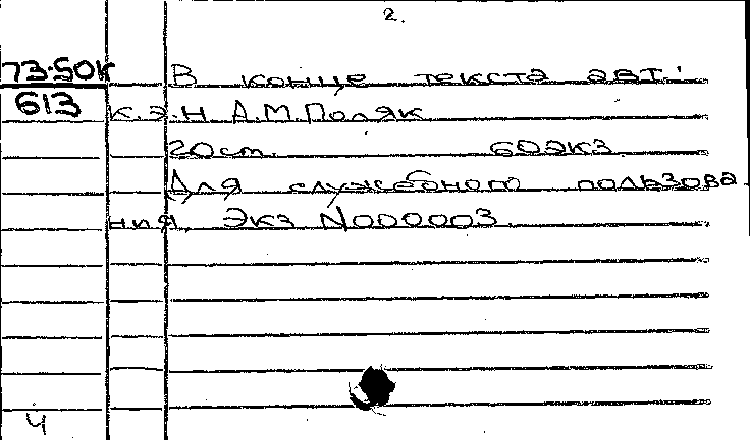 2.
73-50К В конце текста авт.:
613 к.э.н А.М.Поляк
20см. 60экз
Для служебного пользова
ния, Экз N000003
Ч